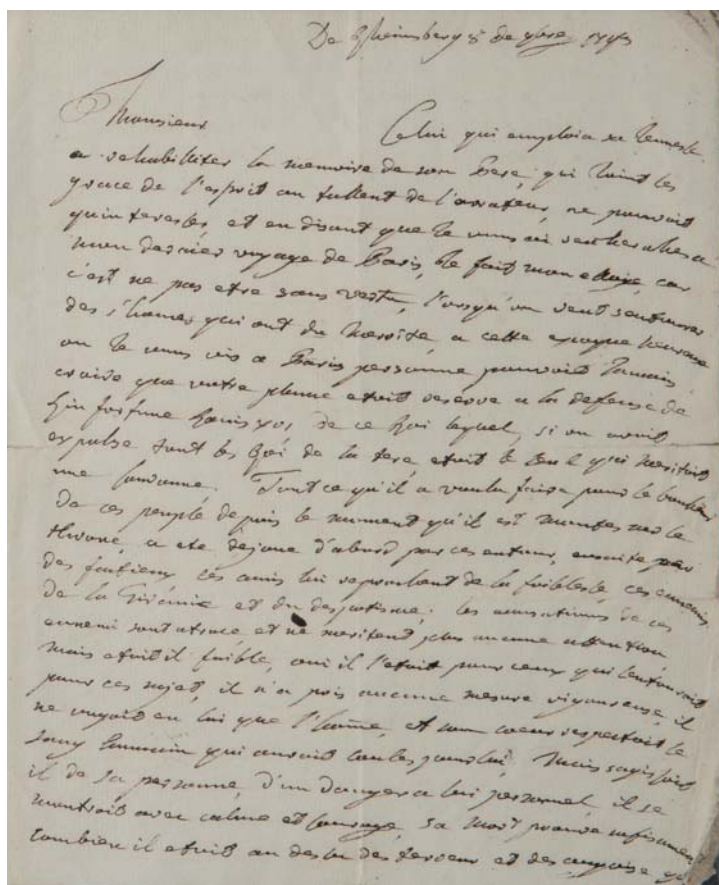 De Rheinsberg 8 de 9bre 1793
Monsieur
Celui qui emploia sa Jeunesse
a rehabilliter la memoire de son Pere, qui Joint les
grace de l'esprit au tallent de l'orrateur, ne pouvoit
qu'interesser, et en disant que Je vous ai recherché a
mon dernier voyage de Paris, Je fait mon eloge, car
c'est ne pas etre sans vertu, l'orsqu'on veut
des l'homes qui ont du merite, a cette epoque heureuse
ou Je vous vis a Paris personne pouvoit Jamais
croire que votre plume etoit reserve a la defense de
l'infortune Louis xvi, de ce Roi lequel, si on avoit
expulse tout les Roi de la tere, etoit le seul qui meritoit
une couronne. Tout ce qu'il a voulu faire pour le bonheur
de ces peuple depuis le moment qu'il est montes sur le
throne, a ete dejoue d'abord par ces entour, ensuite par
des factieux ces amis lui reprochant de la foiblesse, ces ennemis
de la Tirannie et du despotisme; les accusations de ces
ennemi sont atroce et ne meritent plus aucune attention
mais etoit il foible, oui il l'etoit pour ceux qui l'entouroit
pour ces sujet, il n'a pris aucune mesure vigoureuse, il
ne voyoit en lui que l'home, et son coeur respectoit le
sang humain qui auroit coules pour lui. Mais s'agissoit
il de sa personne, d'un danger a lui personnel, il se
montroit avec calme et courage, sa mort prouve sufisament
combien il etoit au dessu des terreur et des